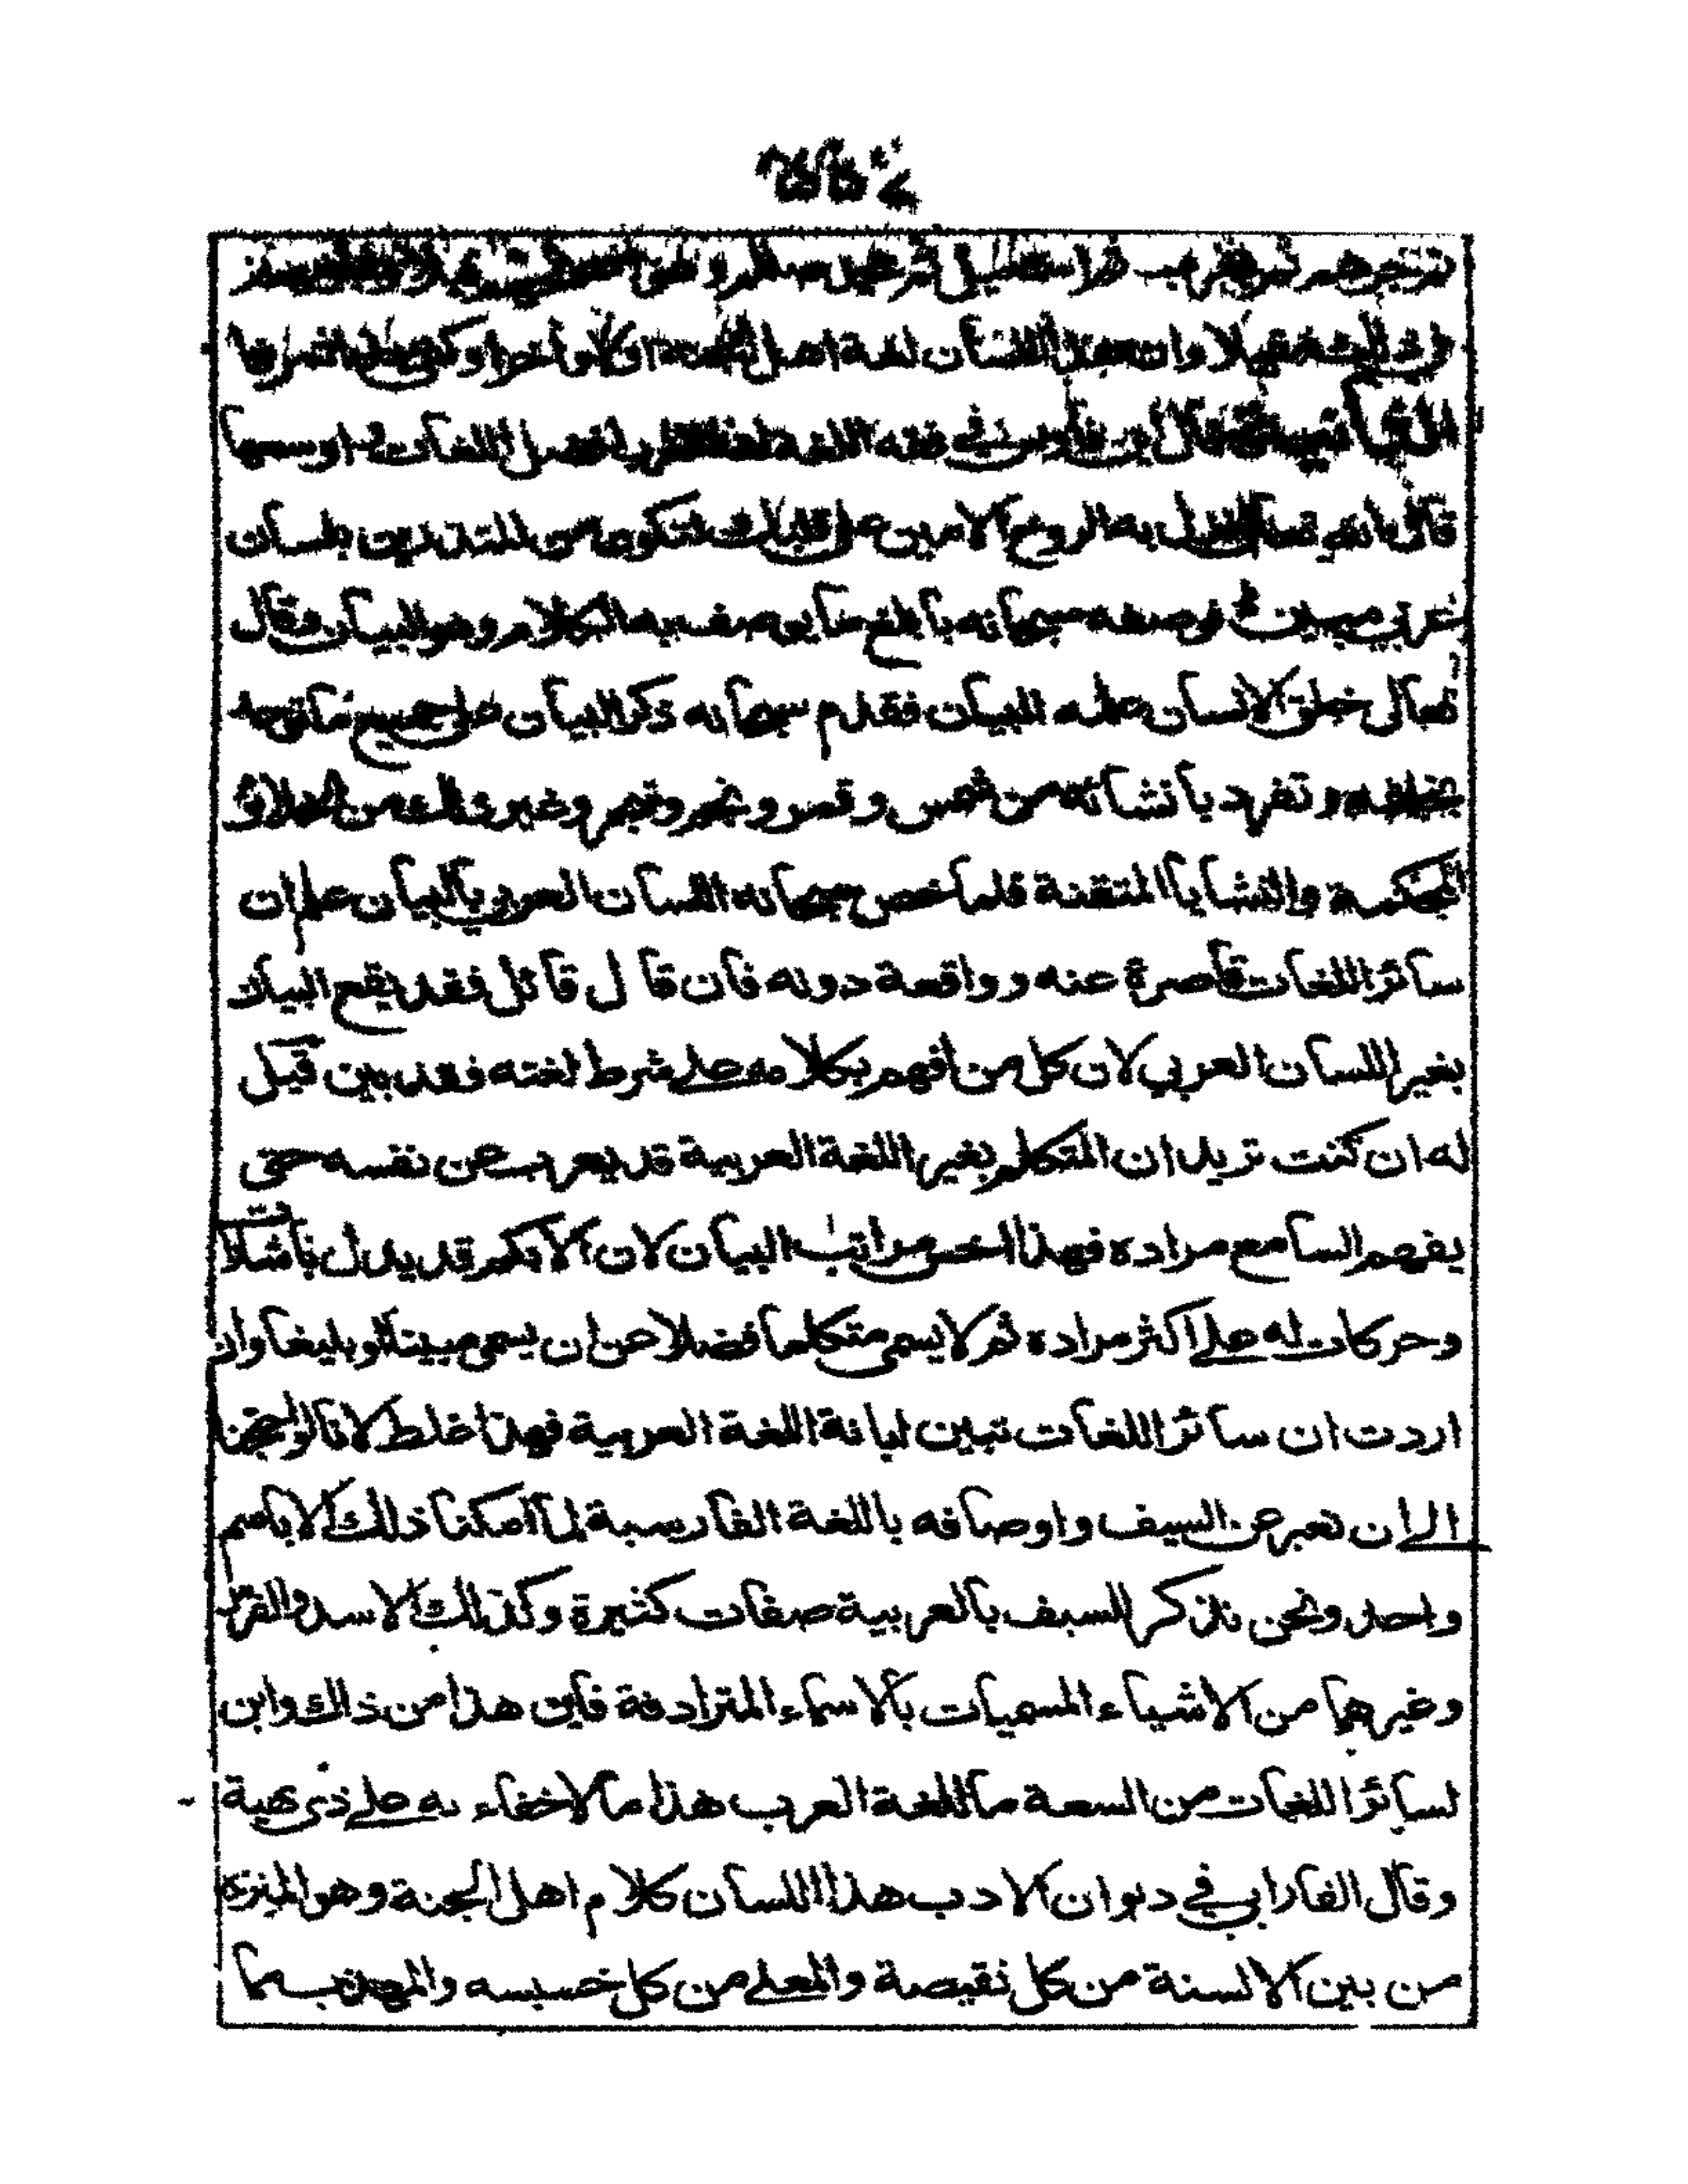 لغة اهل الجنة اولا وآخرا وكفى
قال ابن فارس في فقه اللغة افضل اللغات واوسعها
قال الله تعالى نزل به الروح الامين على قلبك لتكون من المنذرين بلسان
عربي مبين فوصفه سبحانه بابلغ ما يوصف به الكلام وهو البيان وقال
تعالى خلق الانسان علمه البيان فقدم سبحانه ذكر البيان على جميع ما توحد
بخلقه وتفرد بانشائه من شمس وقمر ونجم وشجر وغير ذلك من الخلائق
المحكمة والنشايا المتقنة فلما خص سبحانه اللسان العربي بالبيان علم ان
سائر اللغات قاصرة عنه وواقعة دونه فان قال قائل فقد يقع البيان
بغير اللسان العربي لان كل من افهم بكلامه على شرط لغته فقد بين قيل
له ان كنت تريد ان المتكلم بغير اللغة العربية قد يعرب عن نفسه حتى
يفهم السامع مراده فهذا اخس مراتب البيان لان الابكم قد يدل باشارات
وحركات له على اكثر مراده ثم لا يسمى متكلما فضلا عن ان يسمى مبينا او بليغا وان
اردت ان سائر اللغات تبين ابانة اللغة العربية فهذا غلط لانا لو احتجنا
الى ان نعبر عن السيف واوصافه باللغة الفارسية لما امكننا ذلك الا باسم
واحد ونحن نذكر السيف بالعربية صفات كثيرة وكذلك الاسد والفرس
وغيرهما من الاشياء المسميات بالاسماء المترادفة فاين هذا من ذاك واين
لسائر اللغات من السعة ما للغة العرب هذا ما لا خفاء به على ذي نهية
وقال الفارابي في ديوان الادب هذا اللسان كلام اهل الجنة وهو المنزه
من بين الالسنة من كل نقيصة والمعلى من كل خسيسه والمهذب مما